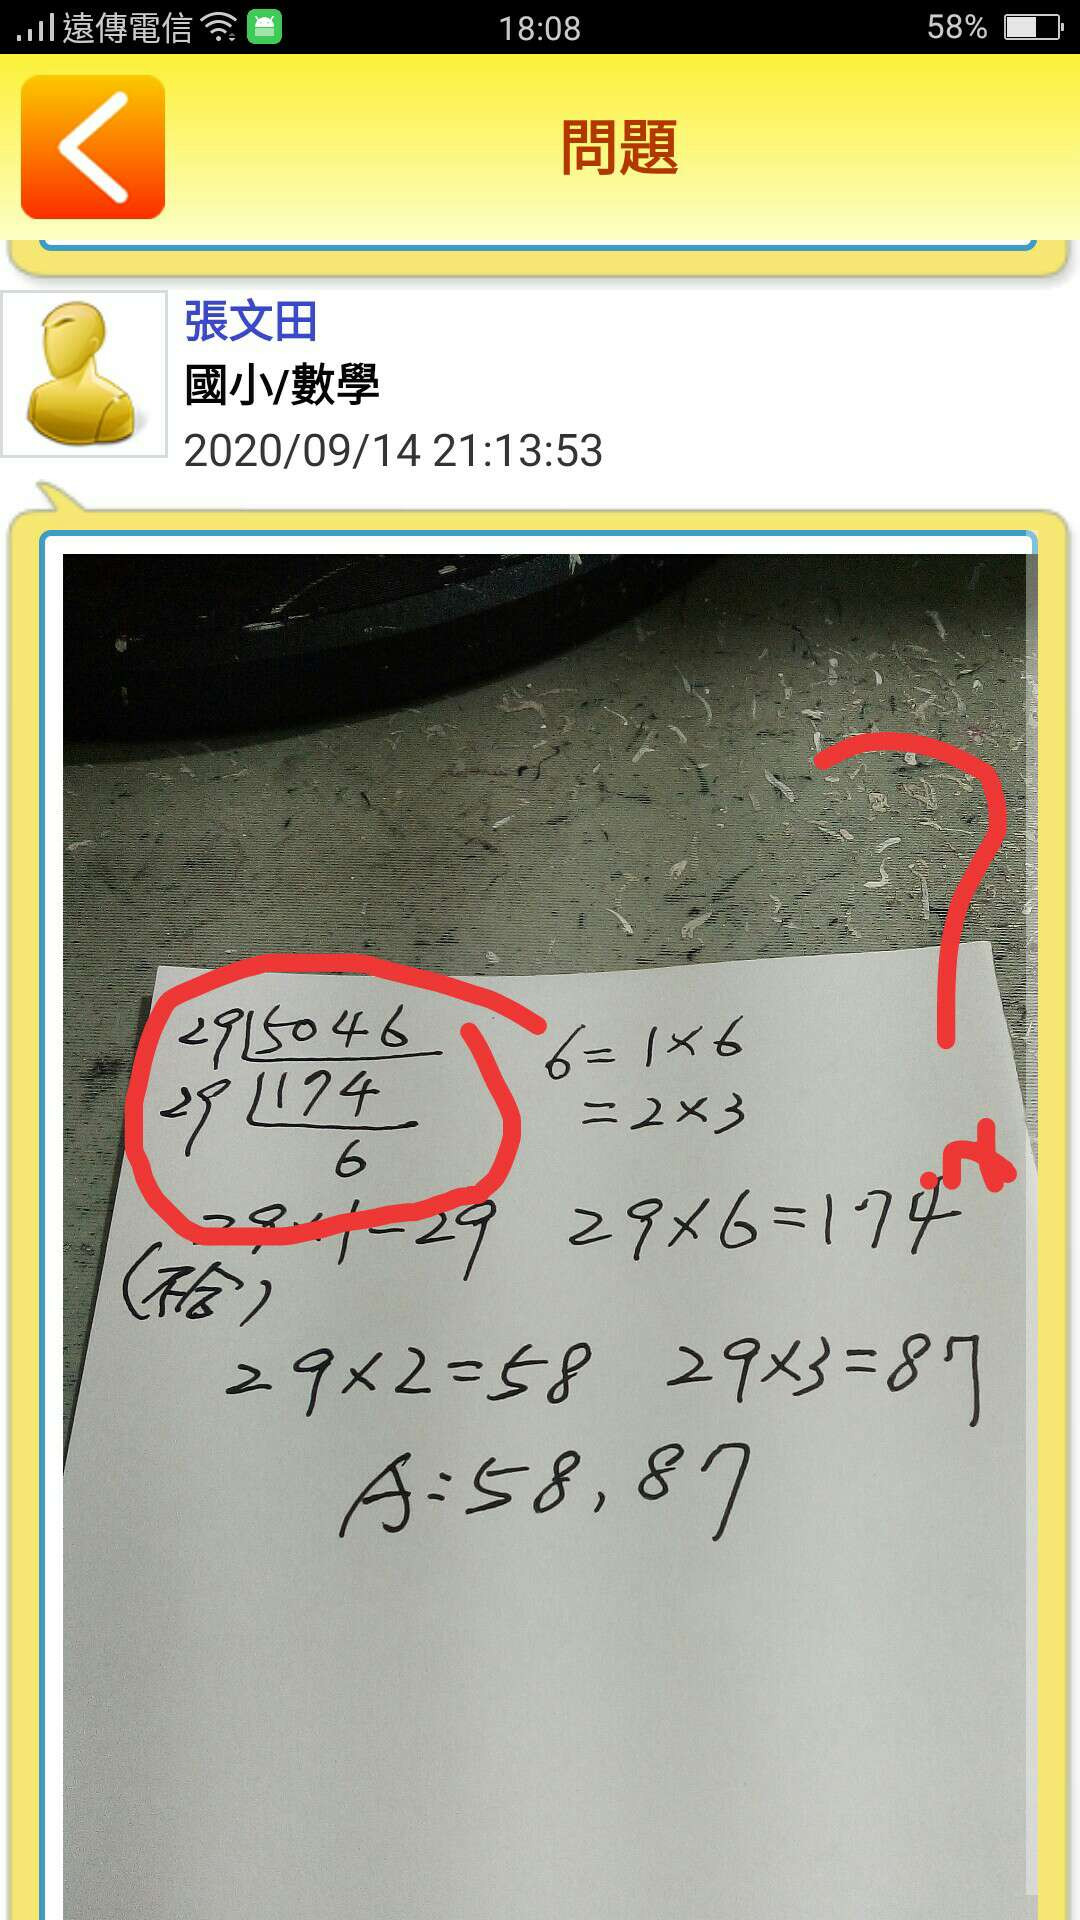 遠傳電信 18:08 58%
問題
張文田
國小/數學
2020/09/14 21:13:53
29 5046 6=1×6
29 174 =2×3
6
29×1=29 29×6=174
(不合)
29×2=58 29×3=87
A:58,87